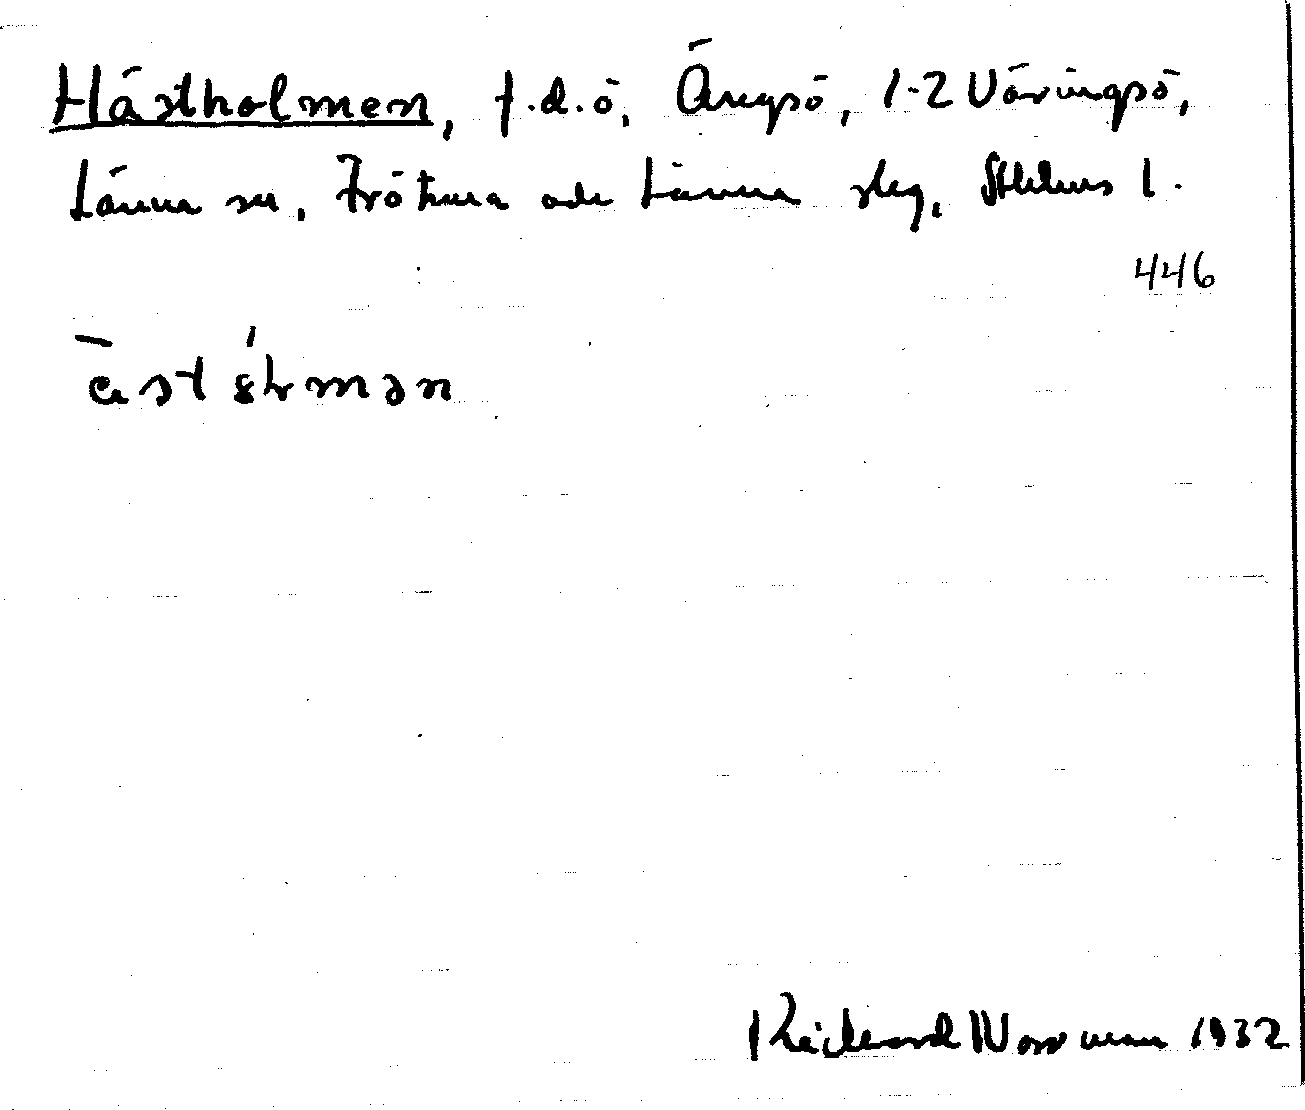 Hästholmen, f.d.ö, Ängsö, 1-2 Väringsö,
Länna sn, Frötuna och Länna skg, Sthlms l.
446
Rickard Norrman 1932